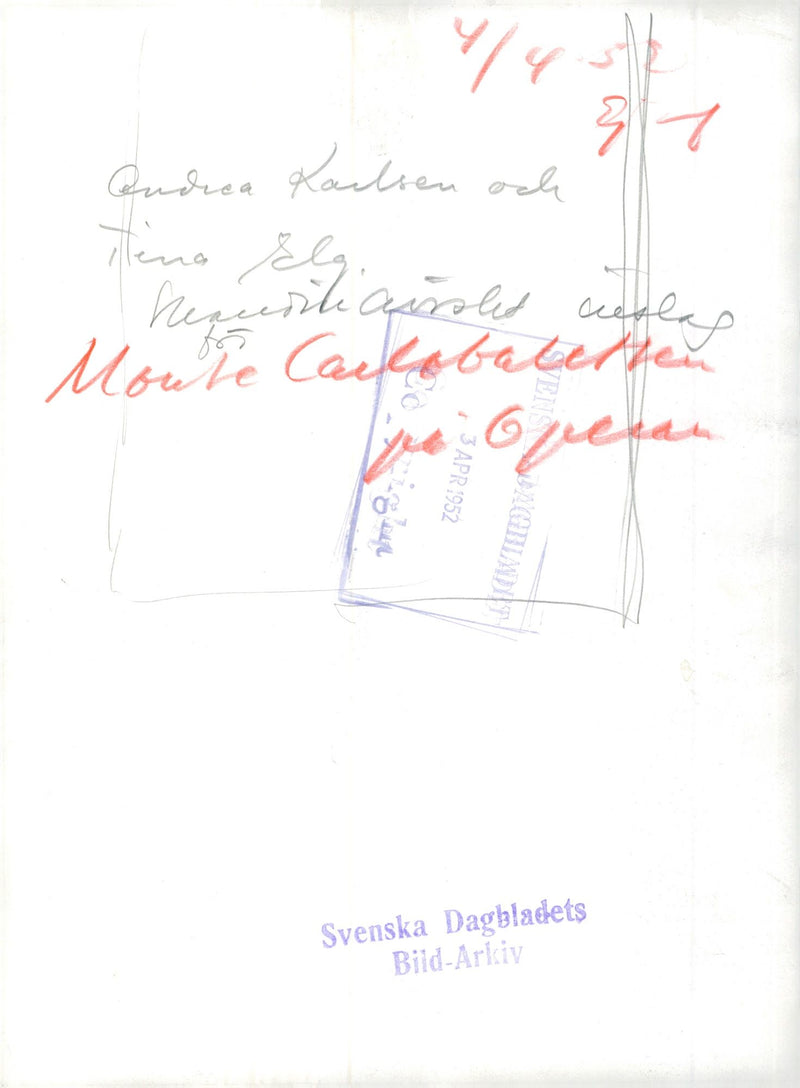 4/4 52
Andrea Karlsen och
Tina
Skandinaviskt inslag
för
Monte Carlobaletten
på Operan
SVENSKA DAGBLADET
3 APR 1952
Copyright
Svenska Dagbladets
Bild-Arkiv